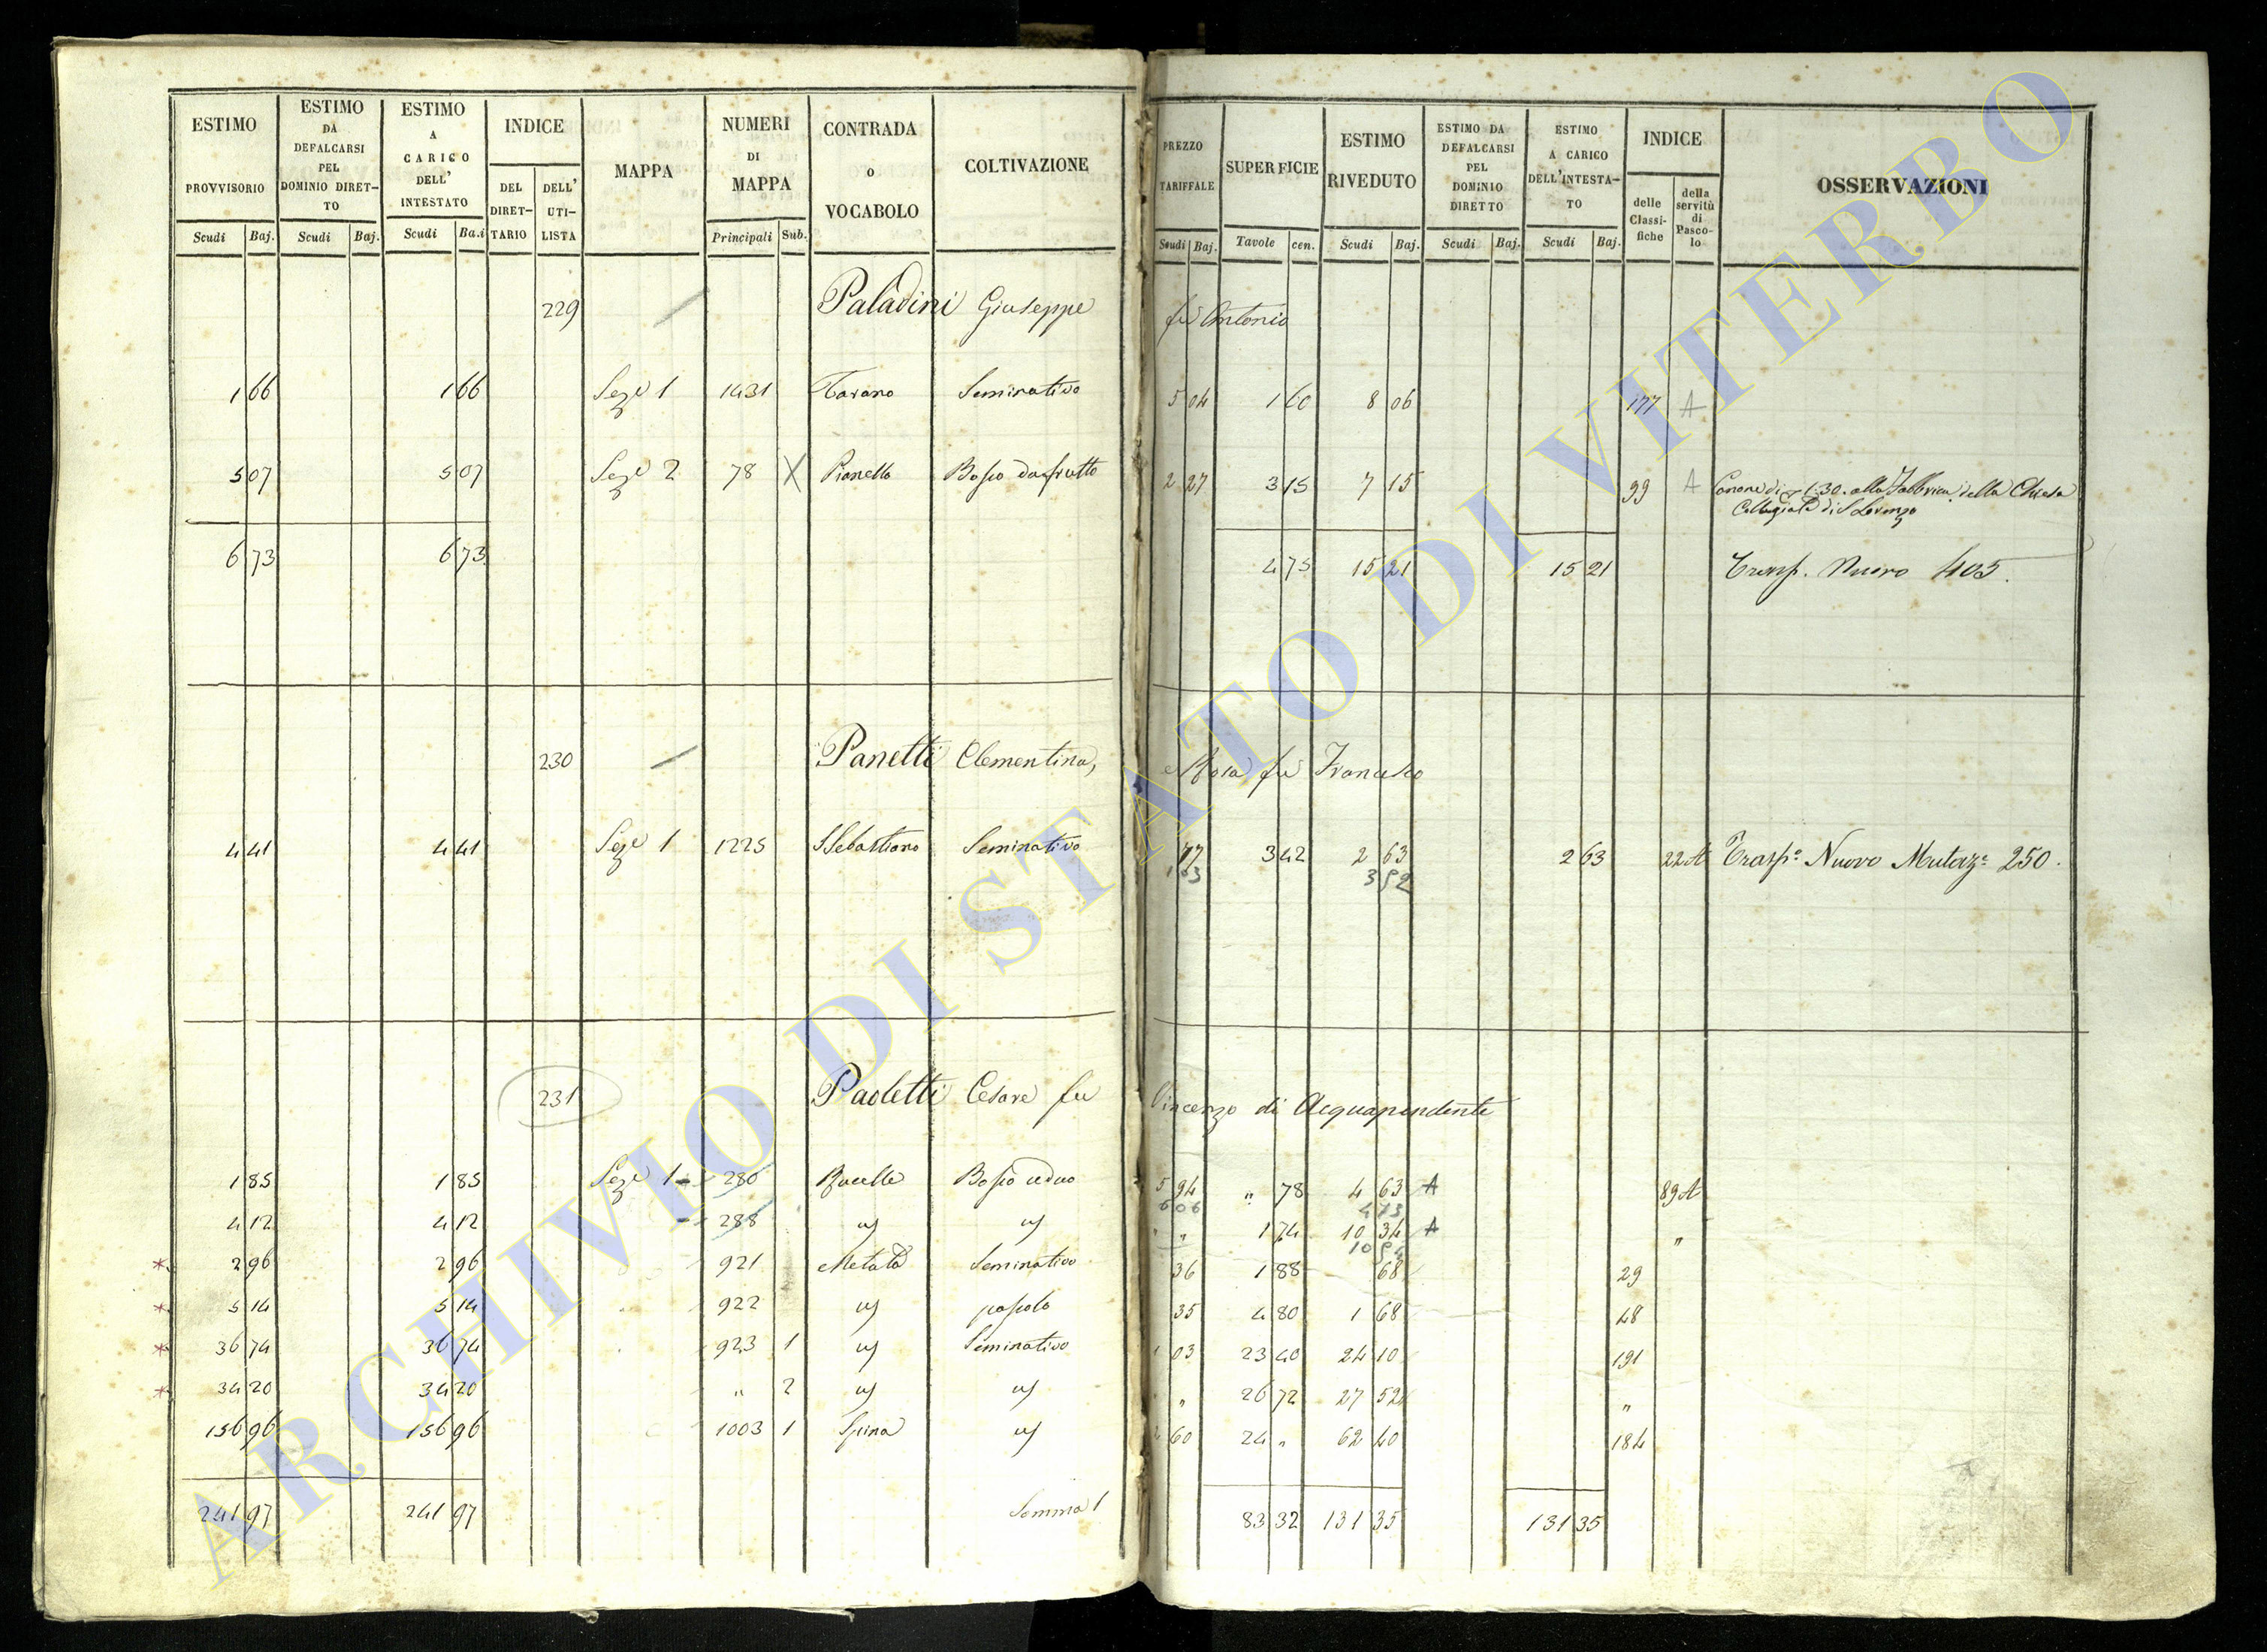 ESTIMO PROVVISORIO
ESTIMO DA DEFALCARSI PEL DOMINIO DIRET-TO
ESTIMO A CARICO DELL' INTESTATO
INDICE
DEL DIRET-TARIO
DELL' UTI-LISTA
MAPPA
NUMERI DI MAPPA
CONTRADA O VOCABOLO
COLTIVAZIONE
PREZZO TARIFFALE
SUPERFICIE
ESTIMO RIVEDUTO
ESTIMO DA DEFALCARSI PEL DOMINIO DIRETTO
ESTIMO A CARICO DELL'INTESTA-TO
INDICE
delle Classi-fiche
della servitù di Pasco-lo
OSSERVAZIONI
Scudi Baj. Scudi Baj. Scudi Baj. Principali Sub. Scudi Baj. Tavole cen. Scudi Baj. Scudi Baj. Scudi Baj.
229 Paladini Giuseppe fu Antonio
1 66 1 66 Seze 1 1431 Tavano Seminativo 5 04 1 60 8 06 177 A
5 07 5 07 Seze 2 78 X Pianella Bosco da frutto 2 27 3 15 7 15 99 A Canone di 1:30. alla Fabbrica della Chiesa
Collegiata di S Lorenzo
6 73 6 73 4 75 15 21 15 21 Trasp. Nuovo 405.
230 Panetti Clementina, e Rosa fu Francesco
4 41 4 41 Seze 1 1225 S Sebastiano Seminativo 77 3 42 2 63 2 63 22 A Trasp.o Nuovo Mutaz.e 250.
1 03 3 52
231 Paoletti Cesare fu Vincenzo di Acquapendente
1 85 1 85 Seze 1 280 Bosco ceduo 5 94 " 78 4 63 A 89 A
6 06 4 73
4 12 4 12 288 " " 1 74 10 34 A "
10 54
* 2 96 2 96 921 Metata Seminativo 36 1 88 68 29
* 5 14 5 14 922 pascolo 35 4 80 1 68 48
* 36 74 36 74 923 1 Seminativo 1 03 23 40 24 10 191
* 34 20 34 20 " 2 " 26 72 27 52 "
156 96 156 96 1003 1 Spina 2 60 24 " 62 40 184
241 97 241 97 Somma 1 83 32 131 35 131 35
ARCHIVIO DI STATO DI VITERBO